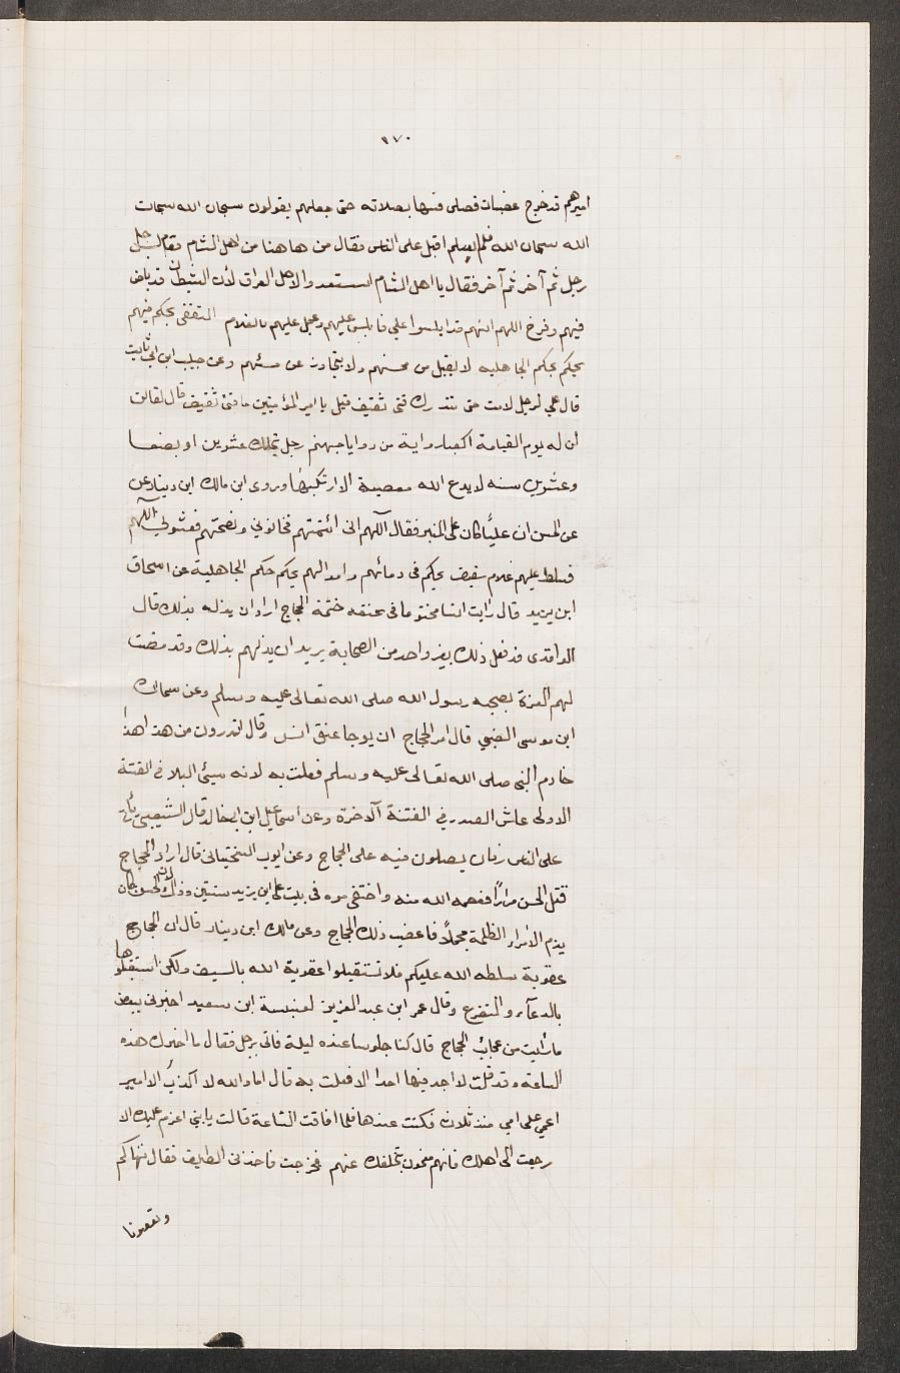 ١٧٠
اميرهم قد خرج غضبان فصلى فسها بصلاته حتى جعلهم يقولون سبحان الله سبحان
الله سبحان الله فلما سلم اقبل على الناس فقال من هاهنا من اهل الشام فقام رجل
رجل ثم آخر ثم آخر فقال يا اهل الشام استعدوا لاهل العراق لأن الشيطان قد باض
فيهم وفرخ اللهم انهم قد ابلسوا علي فابلس عليهم وعجل عليهم بالغلام الثقفى يحكم فيهم
بحكم الجاهليه لا يقبل من محسنهم ولا يتجاوز عن مسئهم وعن حبيب ابن ابى ثابت
قال علي لرجل لامت حتى تدرك فتى ثقيف قيل يا امير المؤمنين ما فتى ثقيف قال ليقالن
ان له يوم القيامة اكفنا رواية من زوايا جهنم رجل يملك عشرين او بضعا
وعشرين سنه لا يدع الله معصية الا ارتكبها وروى ابن مالك ابن دينار عن
عن الحسن ان عليًا كان على المنبر فقال اللهم انى ائتمنتهم فخانوني ونصحتهم فغشوني اللهم
فسلط عليهم غلام ثقيف يحكم فى دمائهم واموالهم بحكم الجاهلية عن اسحاق
ابن يزيد قال رايت انسا مختوما فى عنقه ختمة الحجاج اراد ان يذله بذلك قال
الواقدى قد فعل ذلك بغير واحد من الصحابة يريد ان يذلهم بذلك وقد مضت
لهم العزة بصحبه رسول الله صلى الله تعالى عليه وسلم وعن سماك
ابن موسى الضبي قال امر الحجاج ان يوجا عنق انس وقال اتدرون من هذا هذا
خادم النبى صلى الله تعالى عليه وسلم فعلت به لانه سيئ البلا فى الفتنة
الاولى غاش الصدر في الفتنة الآخرة وعن اسماعيل ابن ابى خالد قال الشعبى يأتى
على الناس زمان يصلون فيه على الحجاج وعن ايوب السختيانى قال اراد الحجاج
قتل الحسن مرارًا فعصمه الله منه واختفى مره فى بيت على ابن يزيد سنتين وذاك لان الحسن كان
يذم الأمراء الظلمة مجملًا فاغضب ذلك الحجاج وعن مالك ابن دينار قال ان الحجاج
عقوبة سلطه الله عليكم فلا تستقبلوا عقوبة الله بالسيف ولكن استقبلوها
بالدعآء والتضرع وقال عمر ابن عبد العزيز لعنبسة ابن سعيد اخبرنى ببعض
ما رأيت من عجائب الحجاج قال كنا جلوسا عنده ليلة فاتى برجل فقال ما اخرجك هذه
الساعة وقد قلت لا اجد فيها احدا الا فعلت به قال اما والله لا اكذب الامير
اغمي على امي منذ ثلاث فكنت عندها فلما افاقت الساعة قالت يا بني اعزم عليك الا
رجعت الى اهلك فانهم مغمون بتخلفك عنهم فخرجت فاخذنى الطايف فقال ننهاكم
وتعصونا